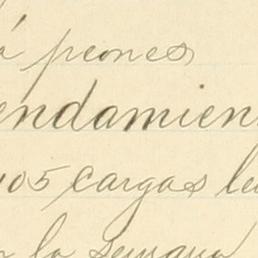 á peones
endamien
105 cargas le
la semana